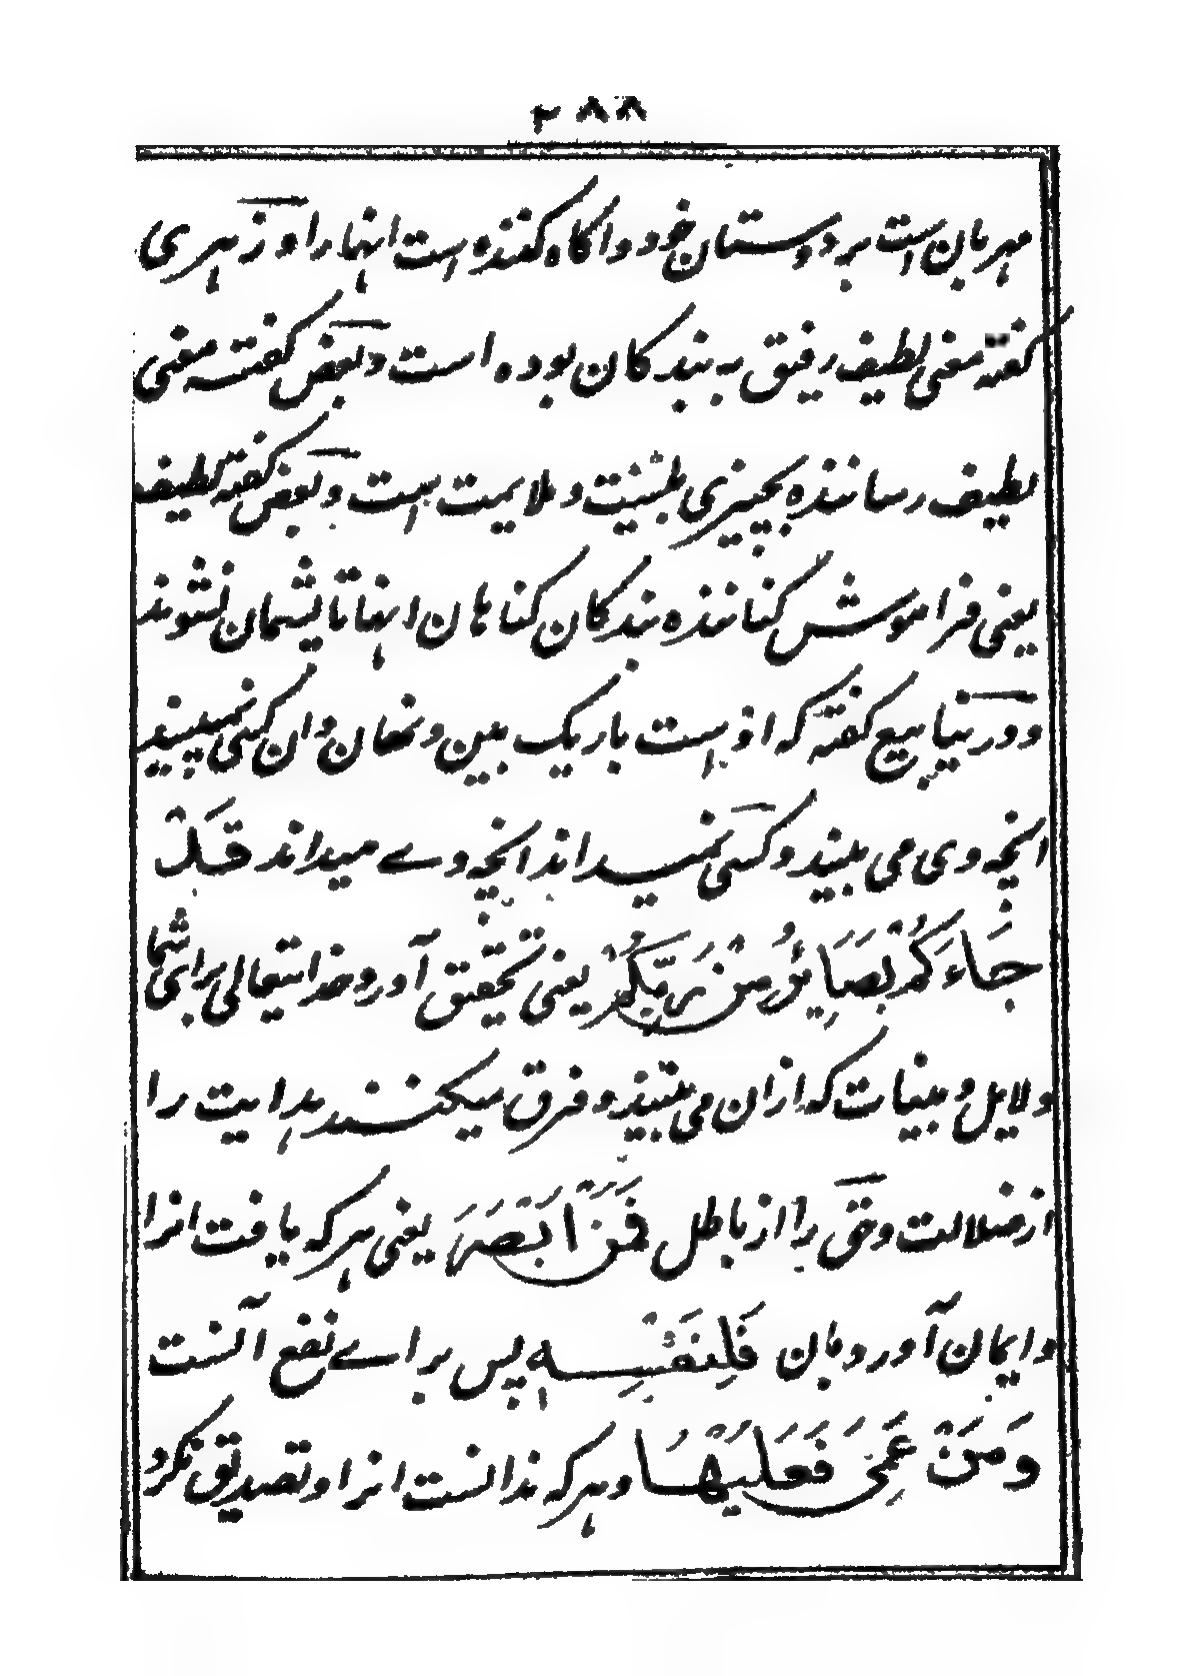 ۲۸۸
مهربان است بر دوستان خود و اکاه کننده است اینها را و زهری
کفته معنی لطیف رفیق به بندکان بوده است و بعض کفته معنی
لطیف رسانندۀ بچیزی بلینیت و ملایمیت است و بعض کفته لطیف
یعنی فراموش کنانندۀ بندکان کناهان اینها تا پشیمان نشوند
و در ینابیع کفته که او است باریک بین و نهان دان کسی نمیبیند
انچه وی می بیند و کسی نمیداند انچه وے میداند قَدْ
جَاءَكُمْ بَصَايِٕرُ مِنْ رَبِّكُمْ یعنی تحقیق آورد خدایتعالی برای شما
دلایل و بینات که ازان می بینید و فرق میکنند هدایت را
از ضلالت و حق را از باطل فَمَنْ اَبْصَرَ یعنی هر که یافت انرا
و ایمان آورد بان فَلِنَفْسِهٖ پس براے نفع آنست
وَمَنْ عَمِىَ فَعَلَيْهَا و هر که ندانست انرا و تصدیق نکرد